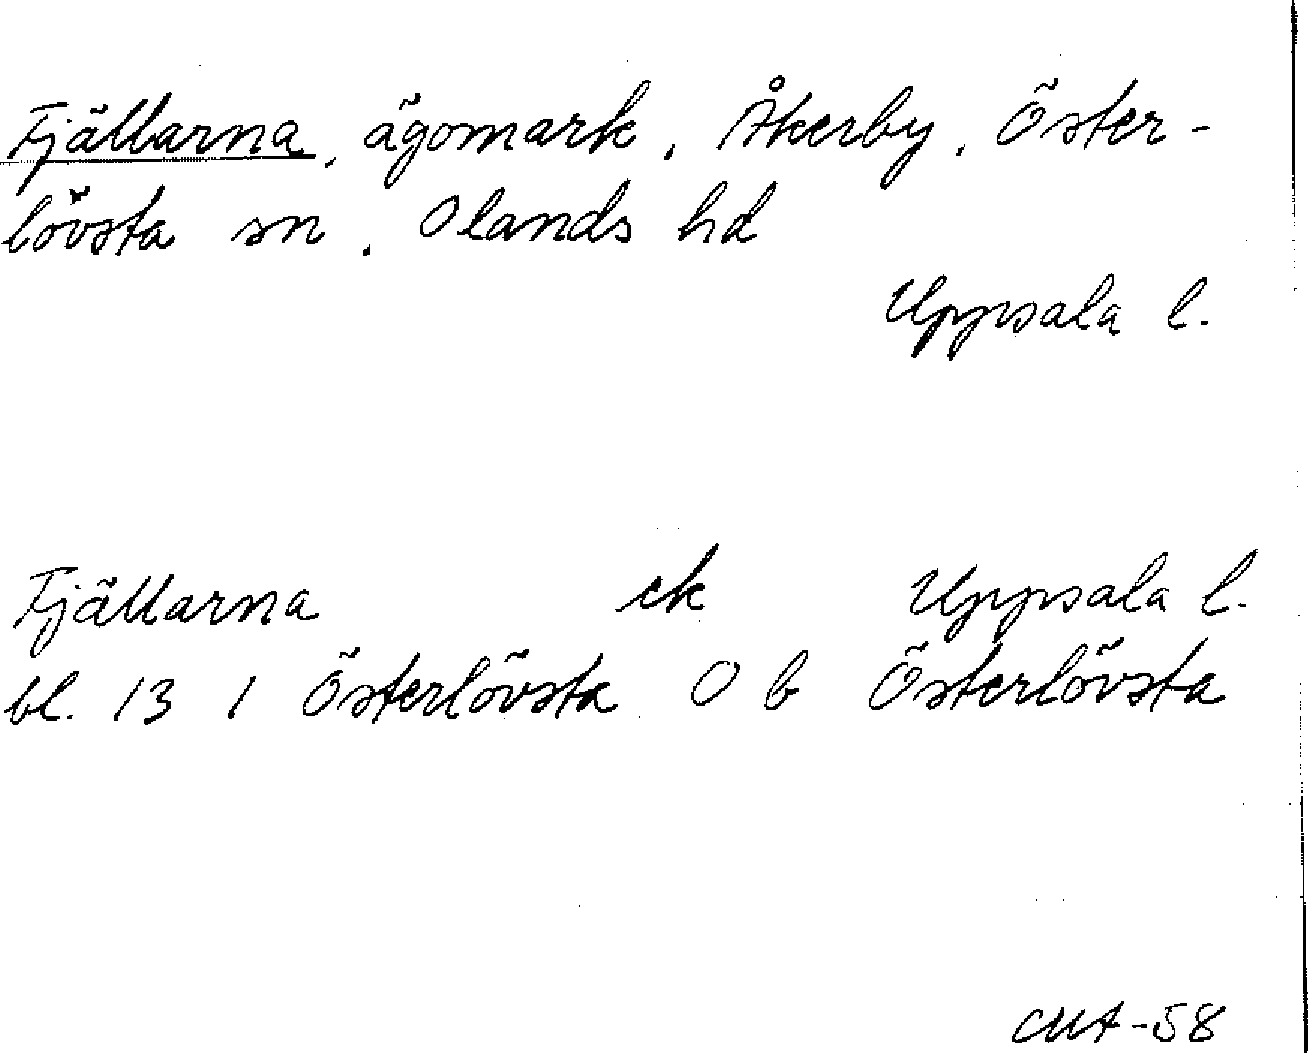 Fjällarna, ägomark, Åkerby, Öster-
lövsta sn, Olands hd
Uppsala l.
Fjällarna ek Uppsala l.
bl. 13 1 Österlövsta O b Österlövsta
-58